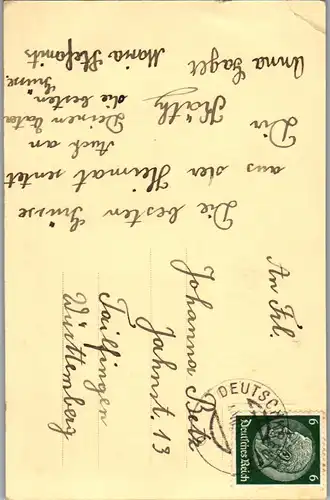 Die besten Grüsse
aus der Heimat sentet
Dir Käthy
Auch an
Deinen Vata
die besten
Grüsse.
Anna Gagel
Maria Stefanits
An Frl.
Johanna Betz
Jahnst. 13
Tailfingen
Württemberg
DEUTSCH
6 6
Deutsches Reich